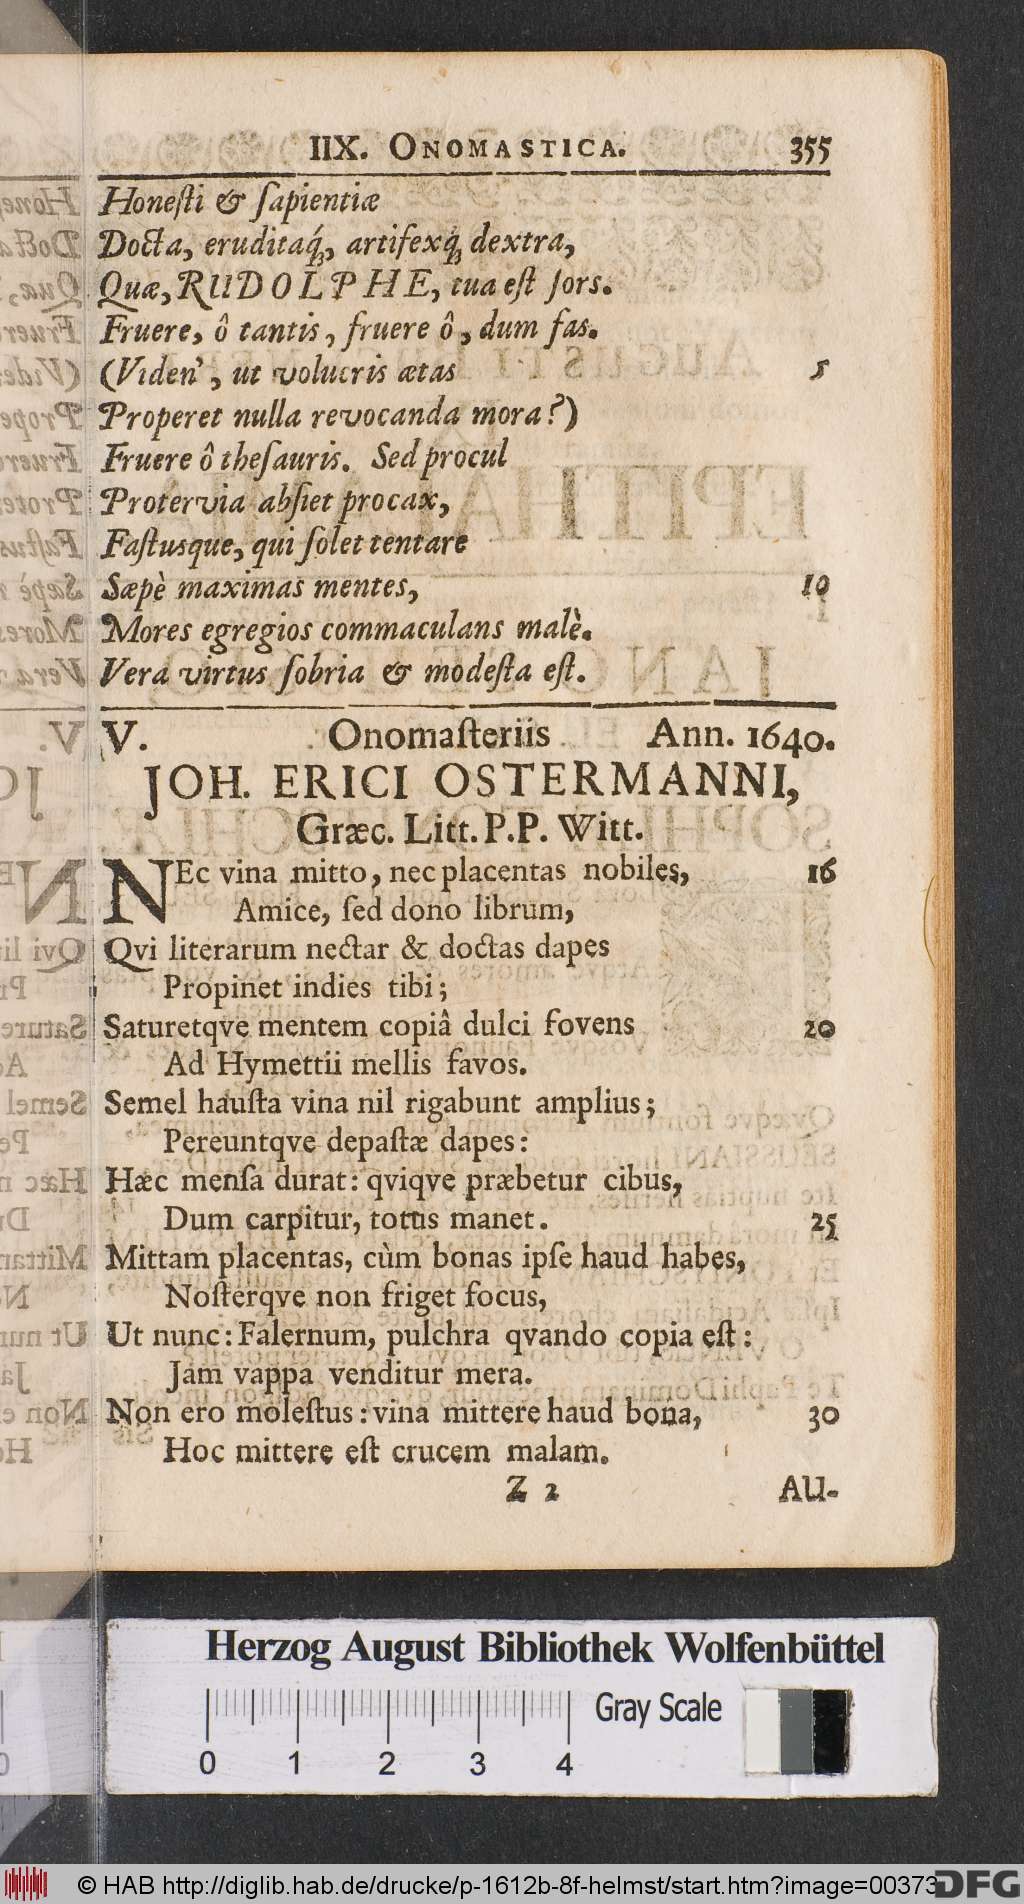 IIX. ONOMASTICA. 355
Honeſti & ſapientiæ
Docta, eruditaq́;, artifexq́; dextra,
Quæ, RUDOLPHE, tua eſt ſors.
Fruere, ô tantis, fruere ô, dum fas.
(Viden', ut volucris ætas 5
Properet nulla revocanda mora?)
Fruere ô theſauris. Sed procul
Protervia abſiet procax,
Faſtusque, qui ſolet tentare
Sæpè maximas mentes, 10
Mores egregios commaculans malè.
Vera virtus ſobria & modeſta eſt.
V. Onomaſteriis Ann. 1640.
JOH. ERICI OSTERMANNI,
Græc. Litt. P.P. Witt.
NEc vina mitto, nec placentas nobiles, 16
Amice, ſed dono librum,
Qvi literarum nectar & doctas dapes
Propinet indies tibi;
Saturetqve mentem copiâ dulci fovens 20
Ad Hymettii mellis favos.
Semel hauſta vina nil rigabunt amplius;
Pereuntqve depaſtæ dapes:
Hæc menſa durat: qviqve præbetur cibus,
Dum carpitur, totus manet. 25
Mittam placentas, cùm bonas ipſe haud habes,
Noſterqve non friget focus,
Ut nunc: Falernum, pulchra qvando copia eſt:
Jam vappa venditur mera.
Non ero moleſtus: vina mittere haud bona, 30
Hoc mittere eſt crucem malam.
Z 2 AU-
Herzog August Bibliothek Wolfenbüttel
Gray Scale
0 1 2 3 4
© HAB http://diglib.hab.de/drucke/p-1612b-8f-helmst/start.htm?image=00373
DFG